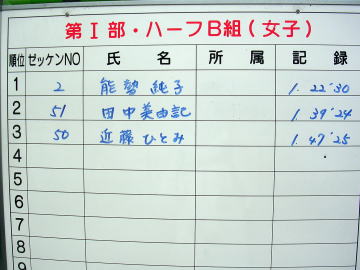 第Ⅰ部・ハーフB組(女子)
順位 ゼッケンNO 氏名 所属 記録
1 2 能勢純子 1.22'30
2 51 田中美由記 1.39'24
3 50 近藤ひとみ 1.47'25
4
5
6
7
8
9